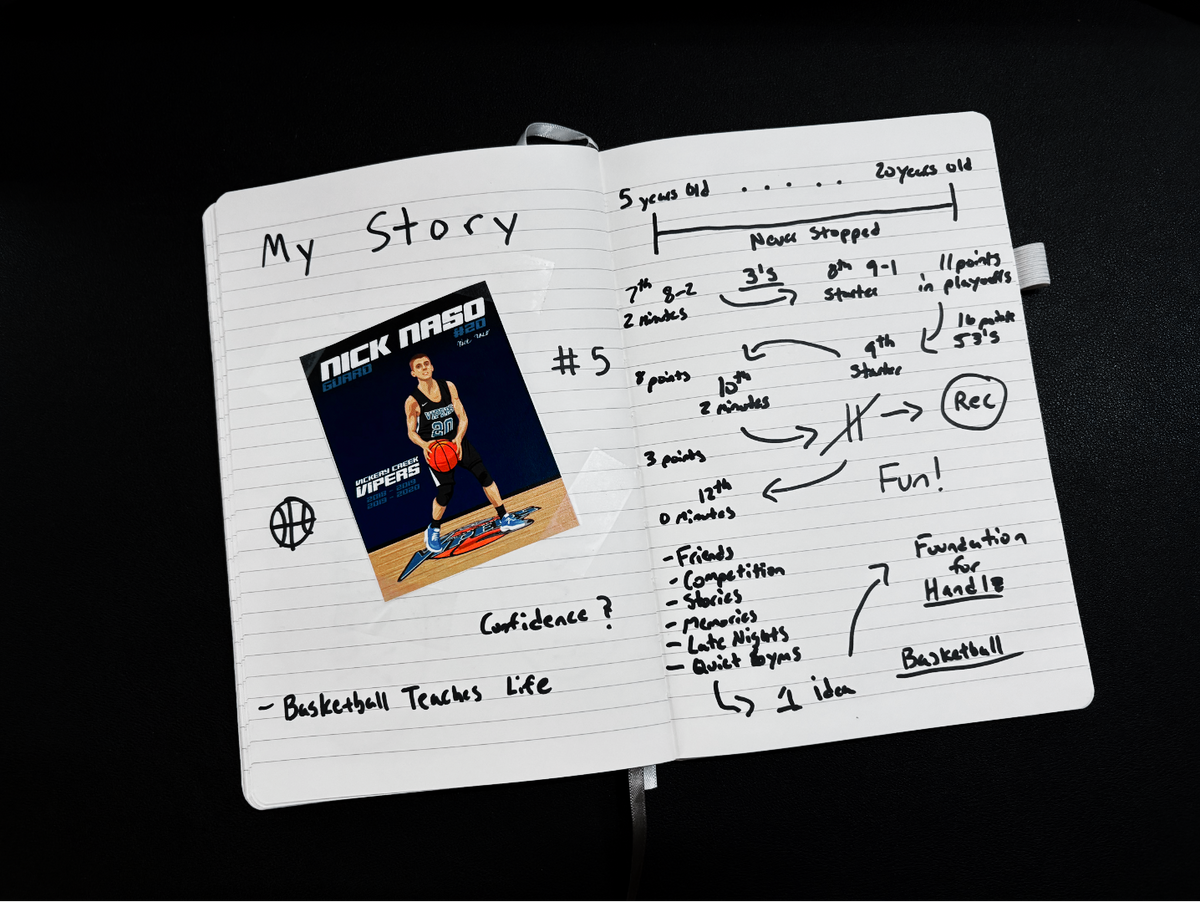 My Story
NICK NASO
#20
GUARD
VIPERS
20
VICKERY CREEK
VIPERS
2018 - 2019
2019 - 2020
#5
Confidence?
- Basketball Teaches Life
5 years old . . . . . 20 years old
Never Stopped
7th 8-2
2 minutes
3's
8th 9-1
Starter
11 points
in playoffs
16 points
5 3's
9th
Starter
8 points
10th
2 minutes
Rec
3 points
Fun!
12th
0 minutes
- Friends
- Competition
- Stories
- Memories
- Late Nights
- Quiet Gyms
1 idea
Foundation
for
Handle
Basketball